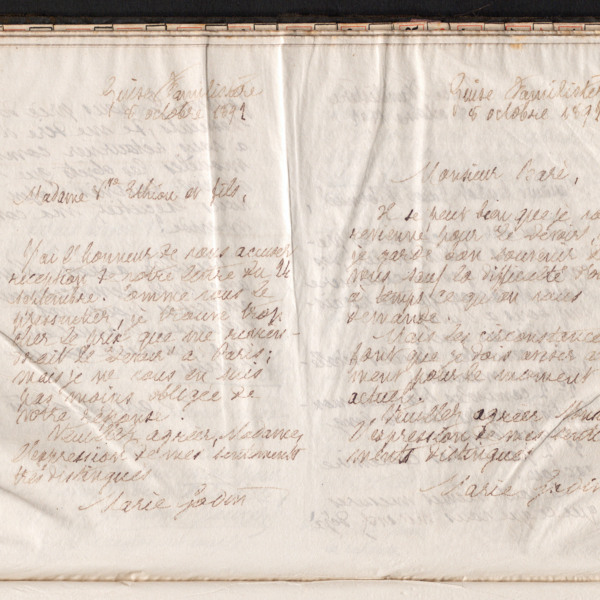 Guise Familistère
8 octobre 1892
Madame Vve Ethiou et fils,
J'ai l'honneur de vous accuser
réception de votre lettre du 24
septembre. Comme vous le
pressentiez, je trouve trop
cher le prix que me revien-
drait le "Devoir" à Paris;
mais je ne vous en suis
pas moins obligée de
votre réponse.
Veuillez agréer, Madame,
l'expression de mes sentiments
très distingués
Marie Godin
Guise Familistère
8 octobre 1892
Monsieur Baré,
Il se peut bien que je
revienne pour le Devoir,
je garde bon souvenir
sauf la difficulté
à temps ce qu'on vous
demande.
Mais les circonstances
font que je dois aviser
ment pour le moment
actuel.
Veuillez agréer
l'expression de mes senti-
ments distingués
Marie Godin